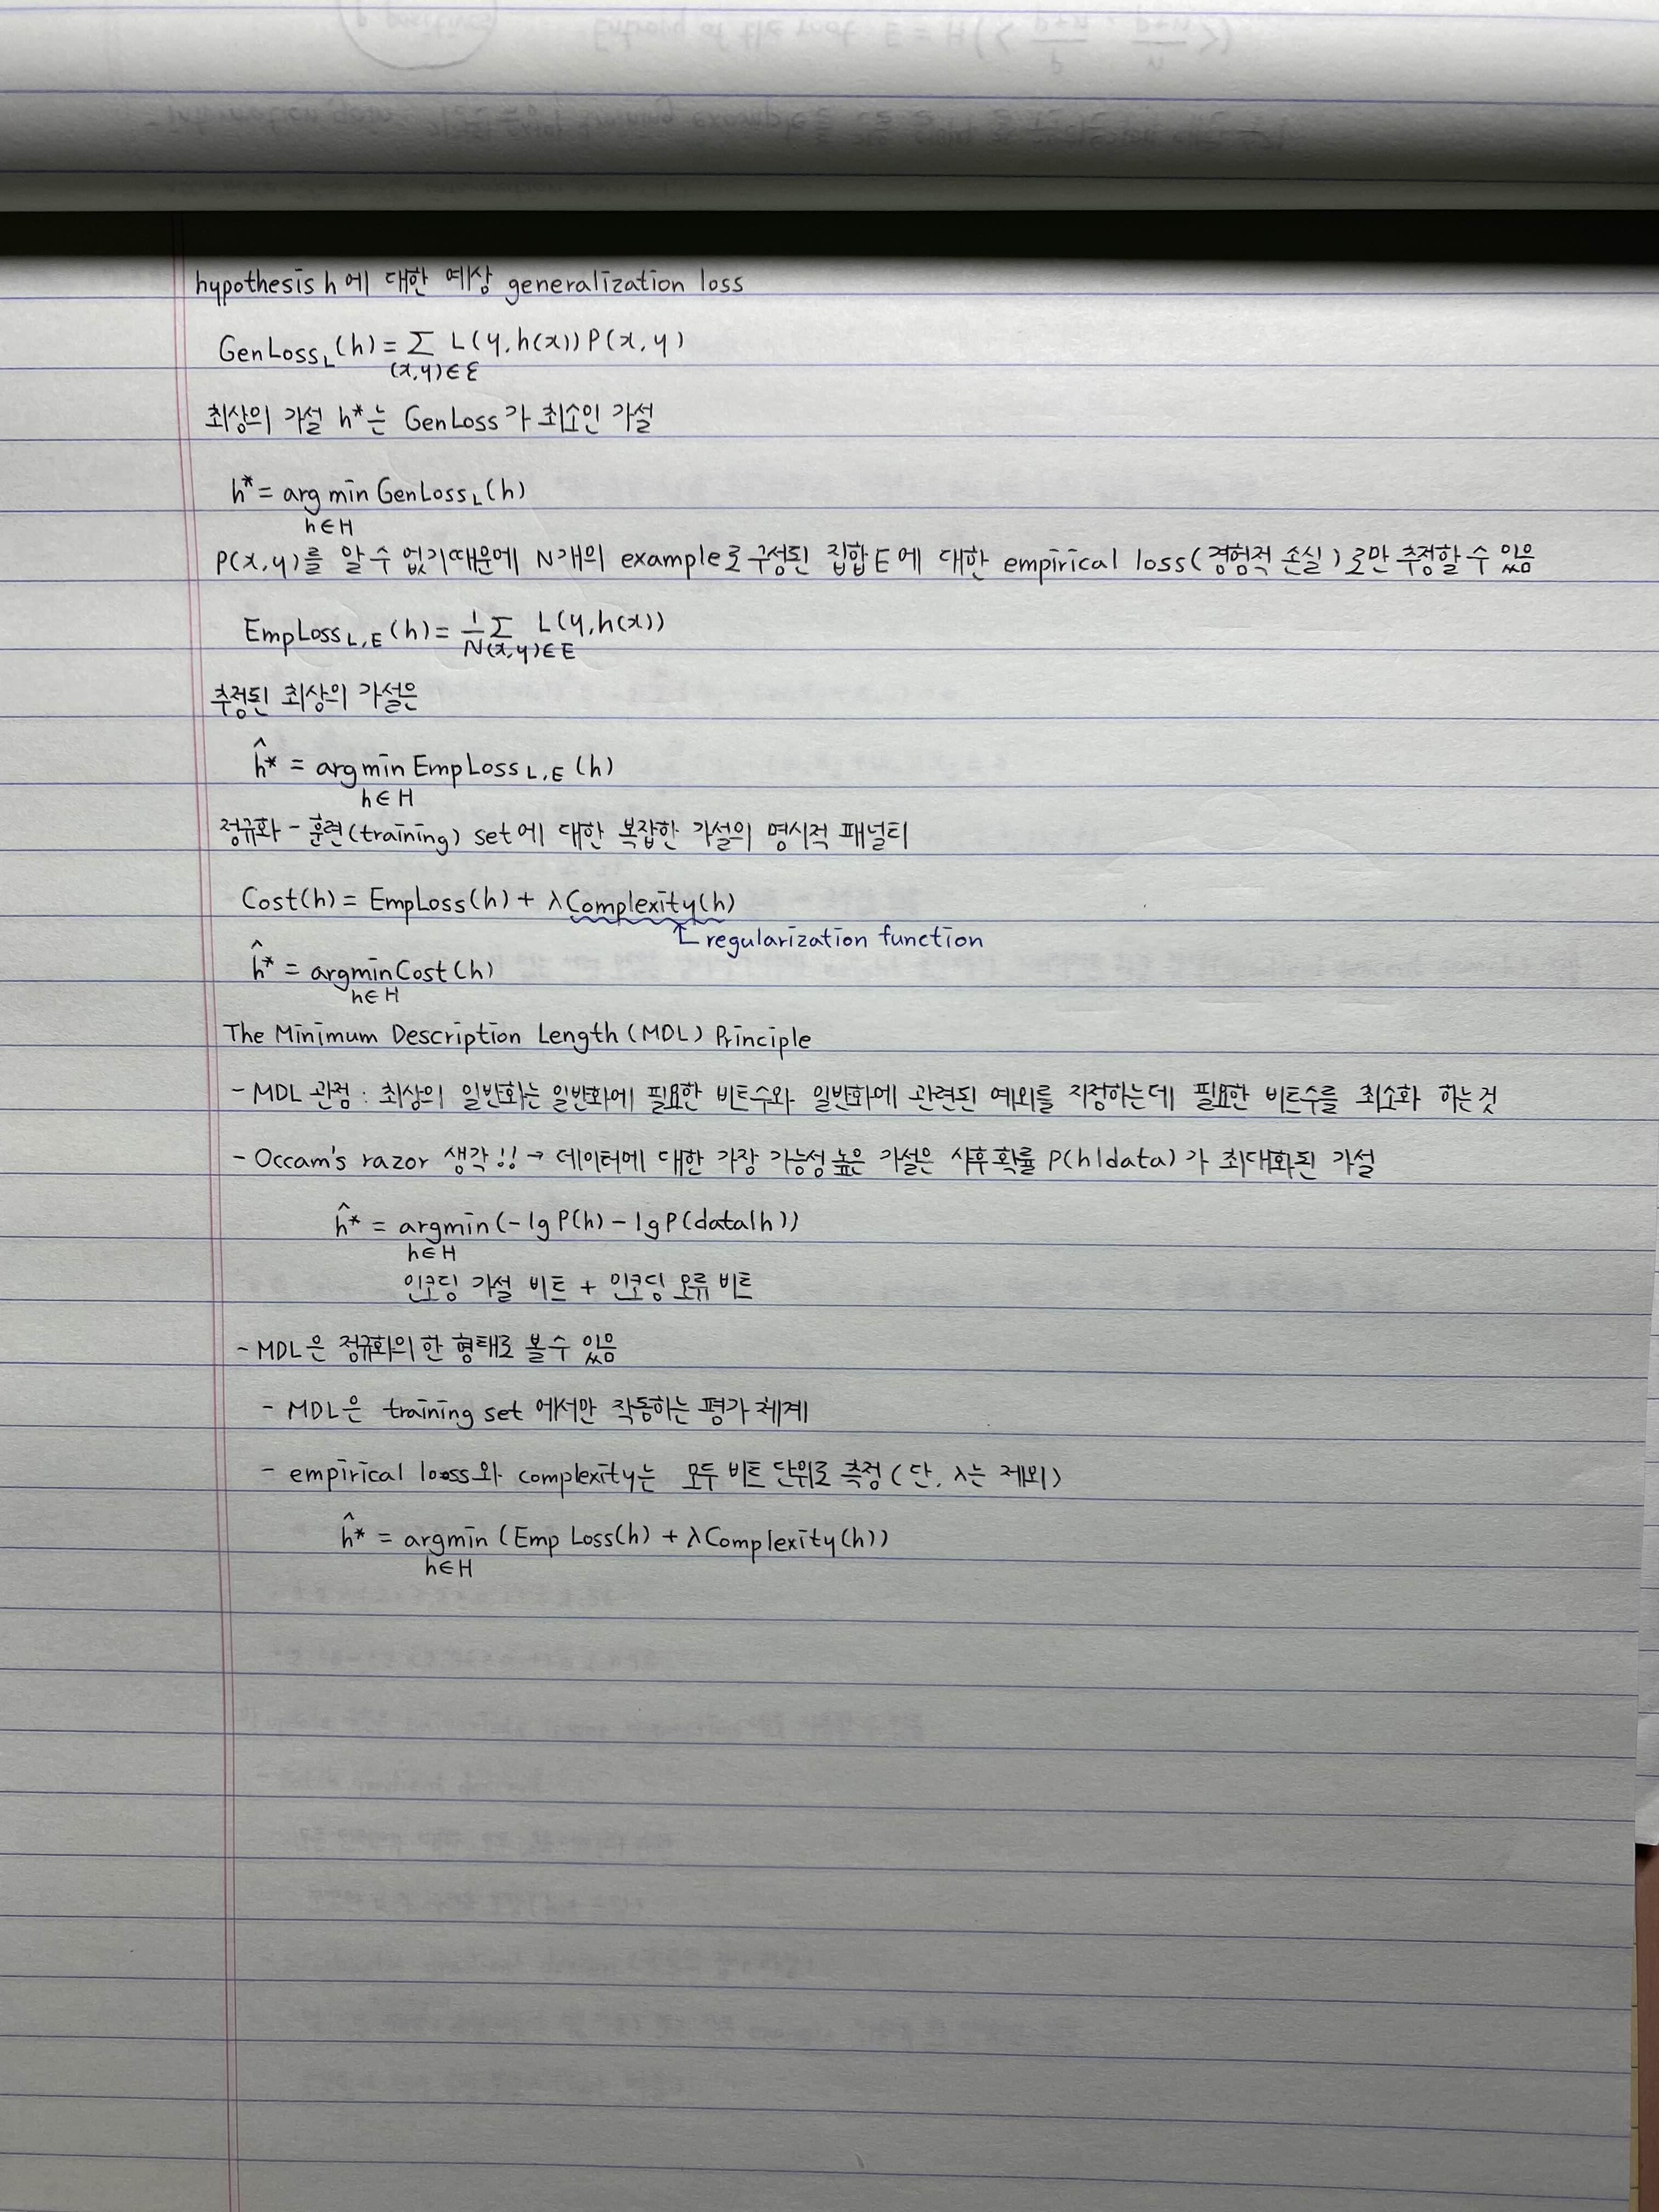 hypothesis h에 대한 예상 generalization loss
GenLoss_L(h) = Σ L(y, h(x)) P(x, y)
(x,y)∈ℰ
최상의 가설 h*는 GenLoss가 최소인 가설
h* = arg min GenLoss_L(h)
h∈H
P(x,y)를 알 수 없기때문에 N개의 example로 구성된 집합 E에 대한 empirical loss(경험적 손실)로만 추정할 수 있음
EmpLoss_L,E(h) = 1/N Σ L(y, h(x))
(x,y)∈E
추정된 최상의 가설은
ĥ* = arg min EmpLoss_L,E(h)
h∈H
정규화 - 훈련(training) set에 대한 복잡한 가설의 명시적 패널티
Cost(h) = EmpLoss(h) + λComplexity(h)
regularization function
ĥ* = argmin Cost(h)
h∈H
The Minimum Description Length (MDL) Principle
- MDL 관점 : 최상의 일반화는 일반화에 필요한 비트수와 일반화에 관련된 예외를 지정하는데 필요한 비트수를 최소화 하는 것
- Occam's razor 생각!! → 데이터에 대한 가장 가능성 높은 가설은 사후 확률 P(h|data)가 최대화된 가설
ĥ* = argmin(-lg P(h) - lg P(data|h))
h∈H
인코딩 가설 비트 + 인코딩 오류 비트
- MDL은 정규화의 한 형태로 볼 수 있음
- MDL은 training set 에서만 작동하는 평가 체계
- empirical loss와 complexity는 모두 비트 단위로 측정 (단, λ는 제외)
ĥ* = argmin (Emp Loss(h) + λComplexity(h))
h∈H